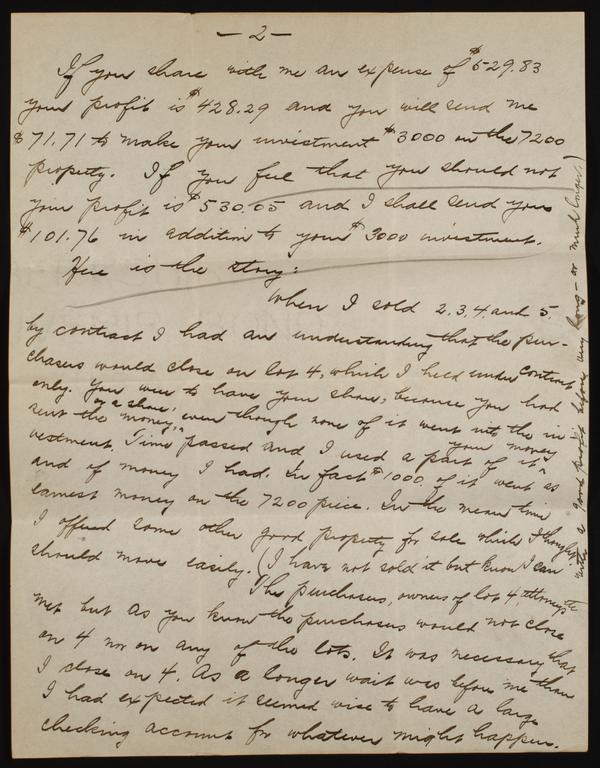 — 2 —
If you share with me an expense of $529.83
your profit is $428.29 and you will send me
$71.71 to make your investment $3000 in the 7200
property. If you feel that you should not
your profit is $530.05 and I shall send you
$101.76 in addition to your $3000 investment.
Here is the story:
When I sold 2, 3, 4 and 5
by contract I had an understanding that the pur-
chasers would close on lot 4, which I held under contract
only. You were to have your share, because you had
sent the money, or a share, even though none of it went into the in
vestment. Time passed and I used a part of it your money
and of money I had. In fact $1000. of it went as
earnest money on the 7200 piece. In the mean time
I offered some other good property for sale which I thought
should move easily. (I have not sold it but know I can
with a good profit before very long – or much longer.)
The purchasers, owners of lot 4, attorneys etc
met but as you know the purchasers would not close
on 4 nor on any of the lots. It was necessary that
I close on 4. As a longer wait was before me than
I had expected it seemed wise to have a large
checking account for whatever might happen.